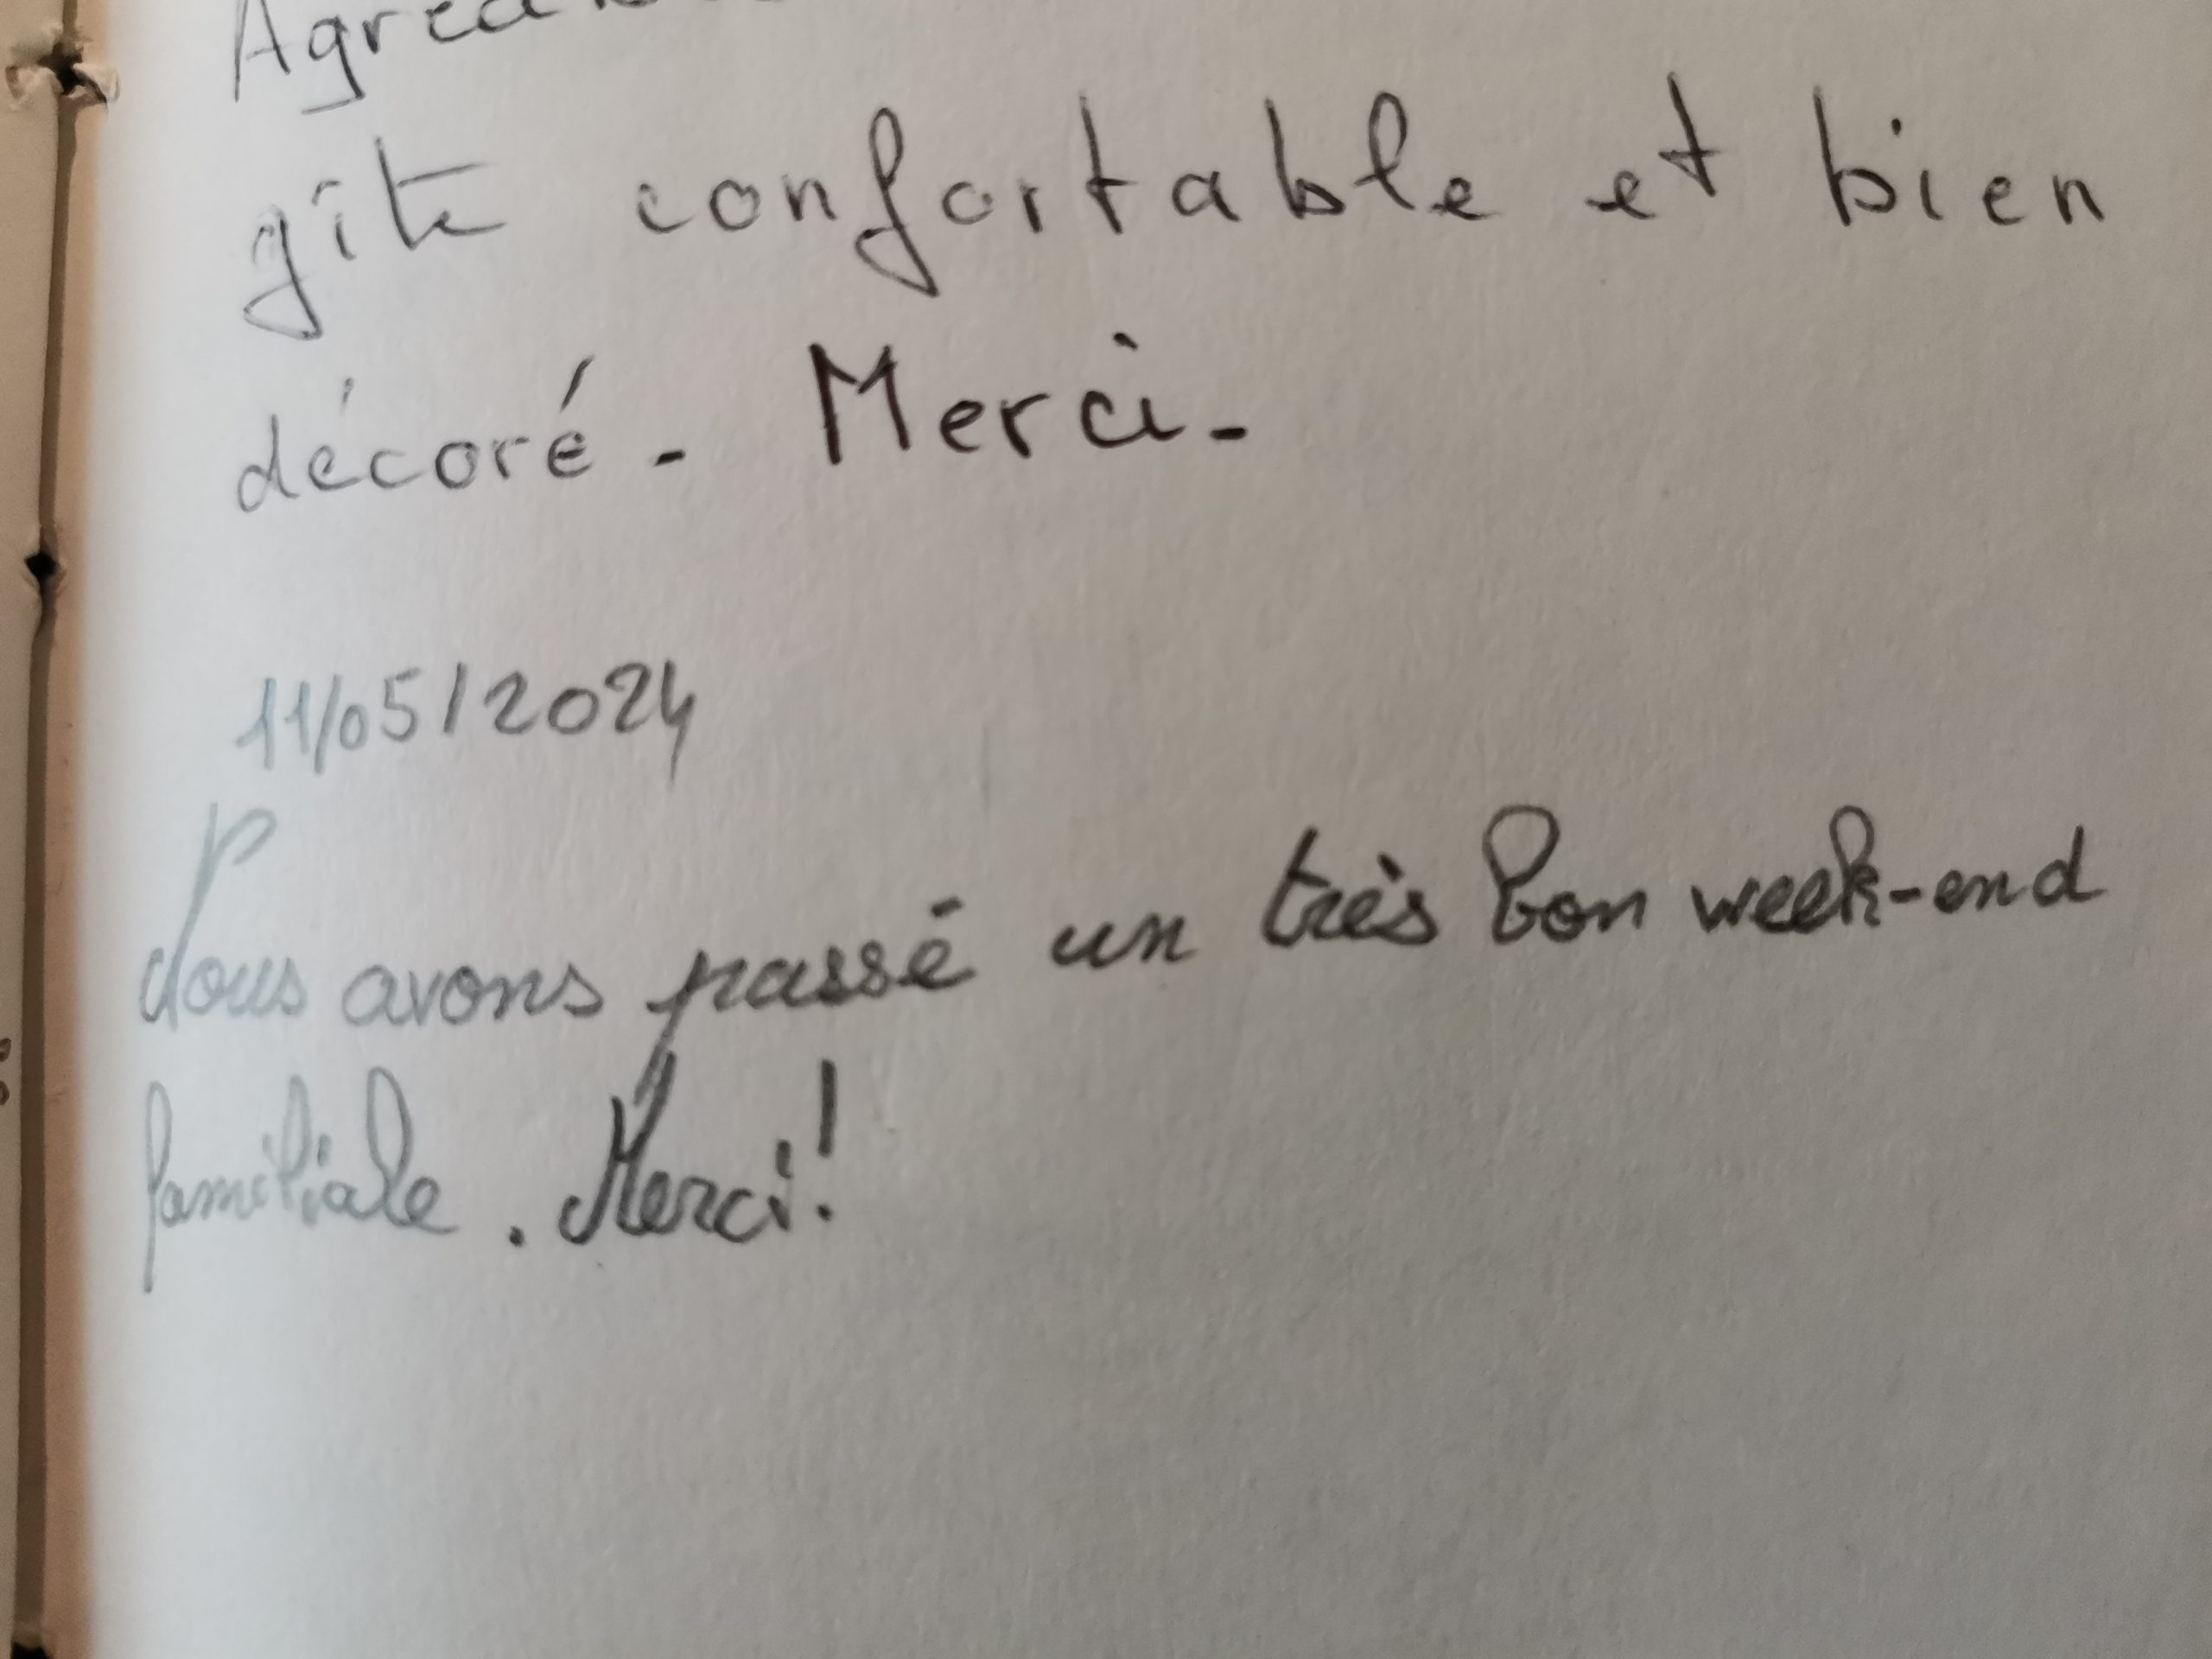 gîte confortable et bien
décoré - Merci -
11/05/2024
Nous avons passé un très bon week-end
familiale. Merci!